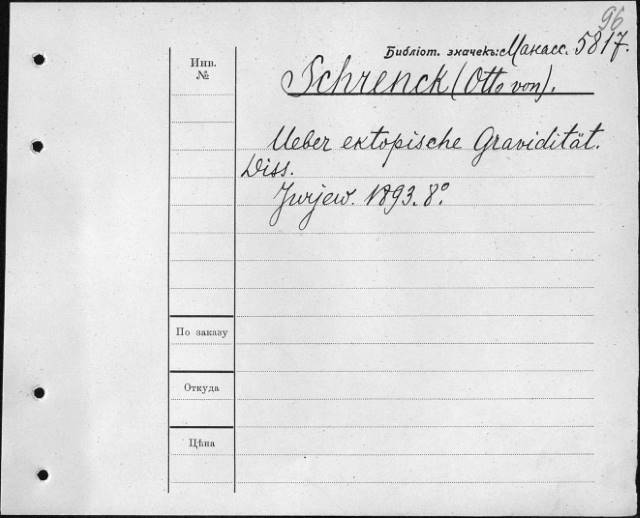 96
Библіот. значекъ: Манасс. 5817.
Инв.
№
Schrenck (Otto von).
Ueber ektopische Gravidität.
Diss.
Jurjew. 1893. 8°.
По заказу
Откуда
Цѣна